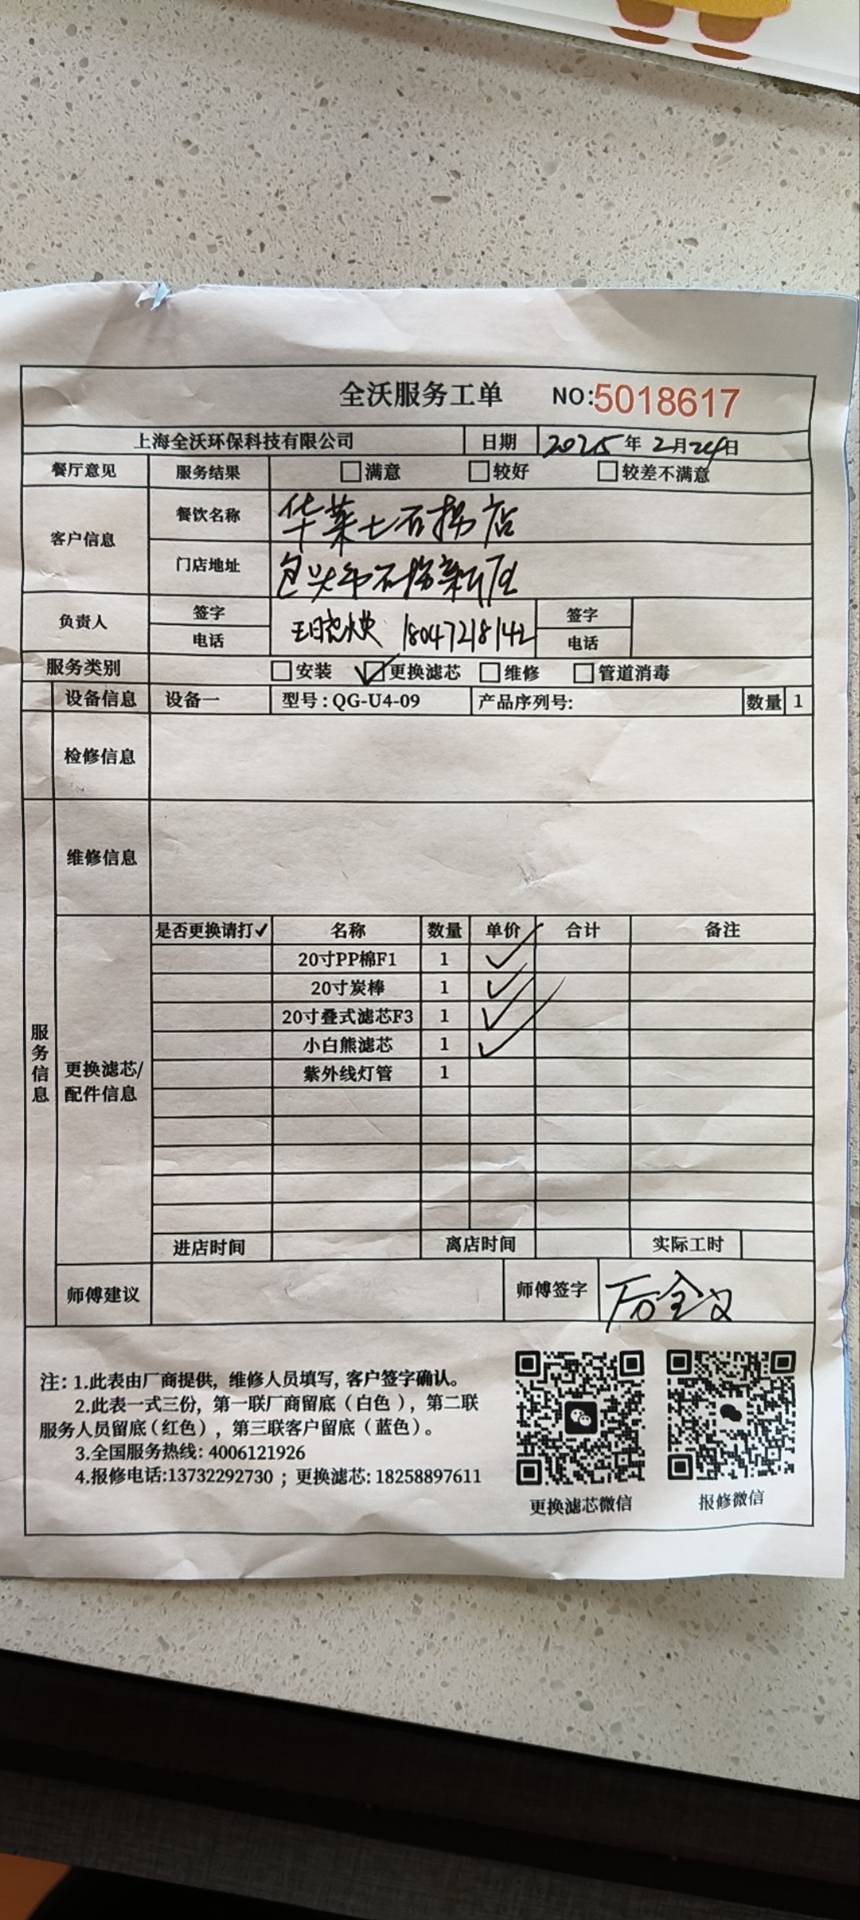 全沃服务工单 NO:5018617
上海全沃环保科技有限公司 日期 2025年2月24日
餐厅意见 服务结果 满意 较好 较差不满意
客户信息 餐饮名称 华莱士石拐店
门店地址 包头市石拐新区
负责人 签字 签字
电话 18047218142 电话
服务类别 安装 ✓更换滤芯 维修 管道消毒
设备信息 设备一 型号:QG-U4-09 产品序列号: 数量 1
检修信息
维修信息
服务信息
更换滤芯/配件信息
是否更换请打✓ 名称 数量 单价 合计 备注
20寸PP棉F1 1 ✓
20寸炭棒 1 ✓
20寸叠式滤芯F3 1 ✓
小白熊滤芯 1 ✓
紫外线灯管 1
进店时间 离店时间 实际工时
师傅建议 师傅签字
注：1.此表由厂商提供，维修人员填写，客户签字确认。
2.此表一式三份，第一联厂商留底（白色），第二联
服务人员留底（红色），第三联客户留底（蓝色）。
3.全国服务热线: 4006121926
4.报修电话:13732292730 ; 更换滤芯: 18258897611
更换滤芯微信 报修微信